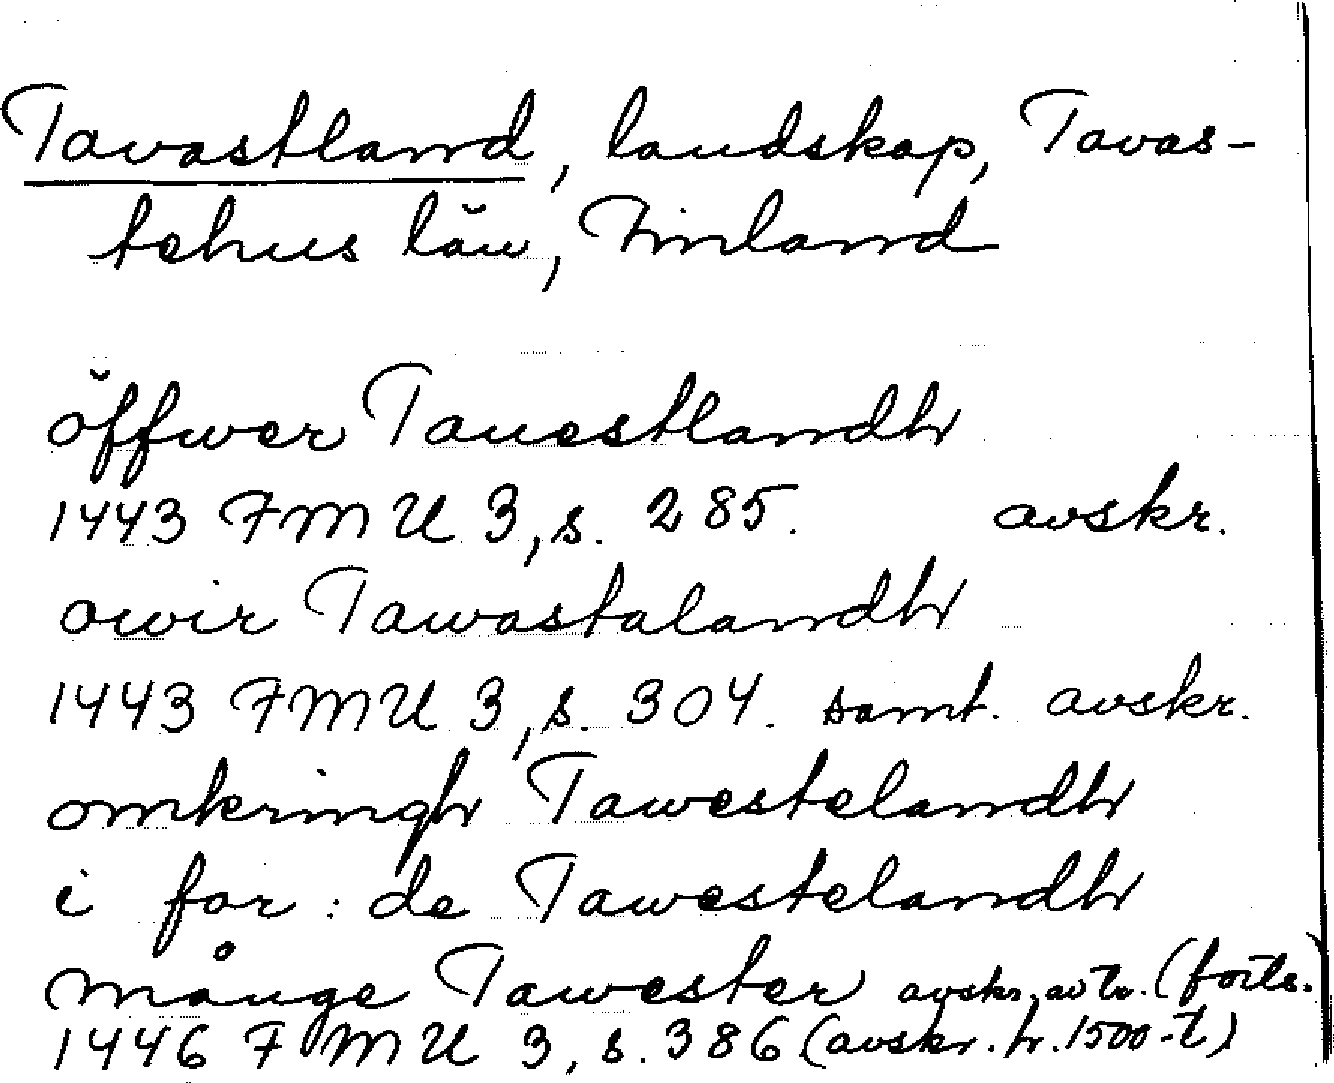 Tavastland, landskap, Tavas-
tehus län, Finland
öffwer Tauestlandh
1443 FMU 3, s. 285. avskr.
owir Tawastalandh
1443 FMU 3, s. 304. samt. avskr.
omkringh Tawestelandh
i for: de Tawestelandh
månge Tawester avskr. av tr. (forts.)
1446 FMU 3, s. 386 (avskr. fr. 1500-t)